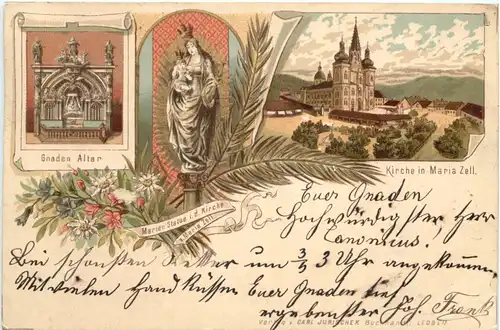 Gnaden Altar
Kirche in Maria Zell.
Marien Statue i. d. Kirche
Maria Zell
Euer Gnaden
Hochwürdigster, Herr
Canonicus!
Bei schönsten Wetter um ¾ 3 Uhr angekommen
Mit vielen Hand Küssen Euer Gnaden
ergebenster Joh. Frank
Verlag v. CARL JURISCHEK Buchhandl. LEOBEN